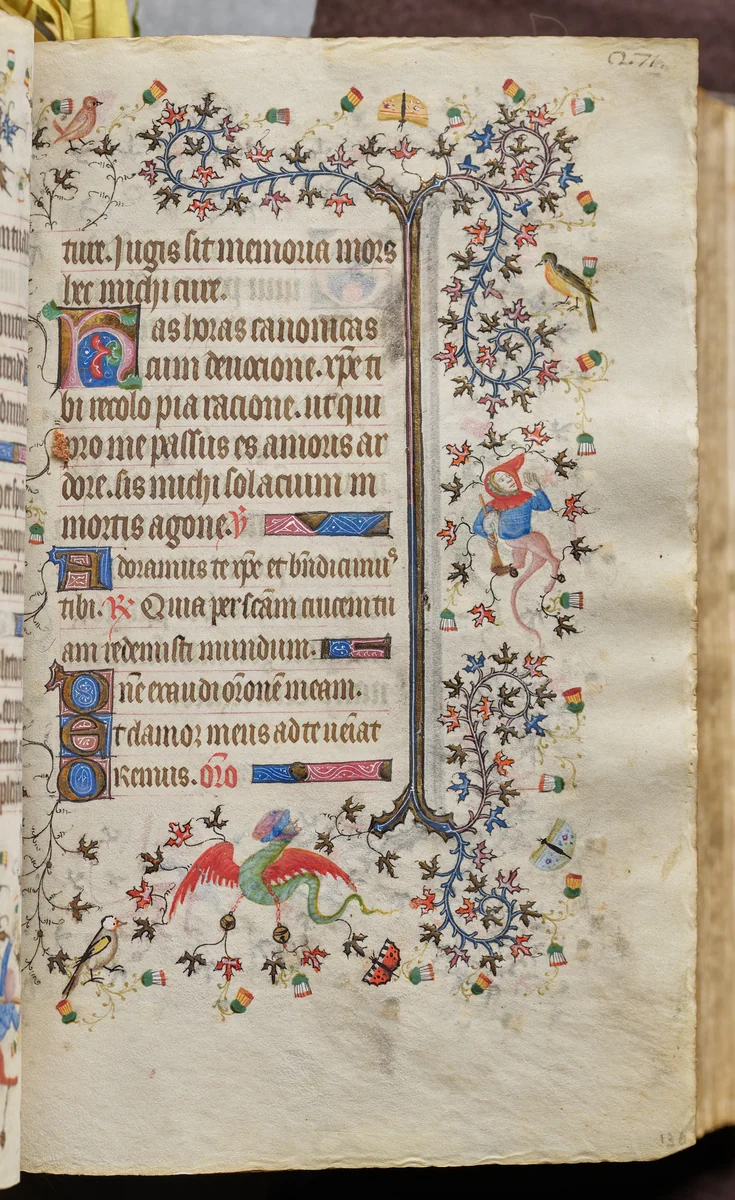 271.
ture. Jugis sit memoria mors
hec michi cure.
Has horas canonicas
cum deuocione. xp̄e ti
bi recolo pia racione. ut qui
pro me passus es amoris ar
dore. sis michi solacium in
mortis agone. V
Adoramus te xp̄e et bn̄dicimuꝰ
tibi. R Quia per scām crucem tu
am redemisti mundum.
Dn̄e exaudi orōnē meam.
Et clamor meus ad te ueīat
Oremus. orō